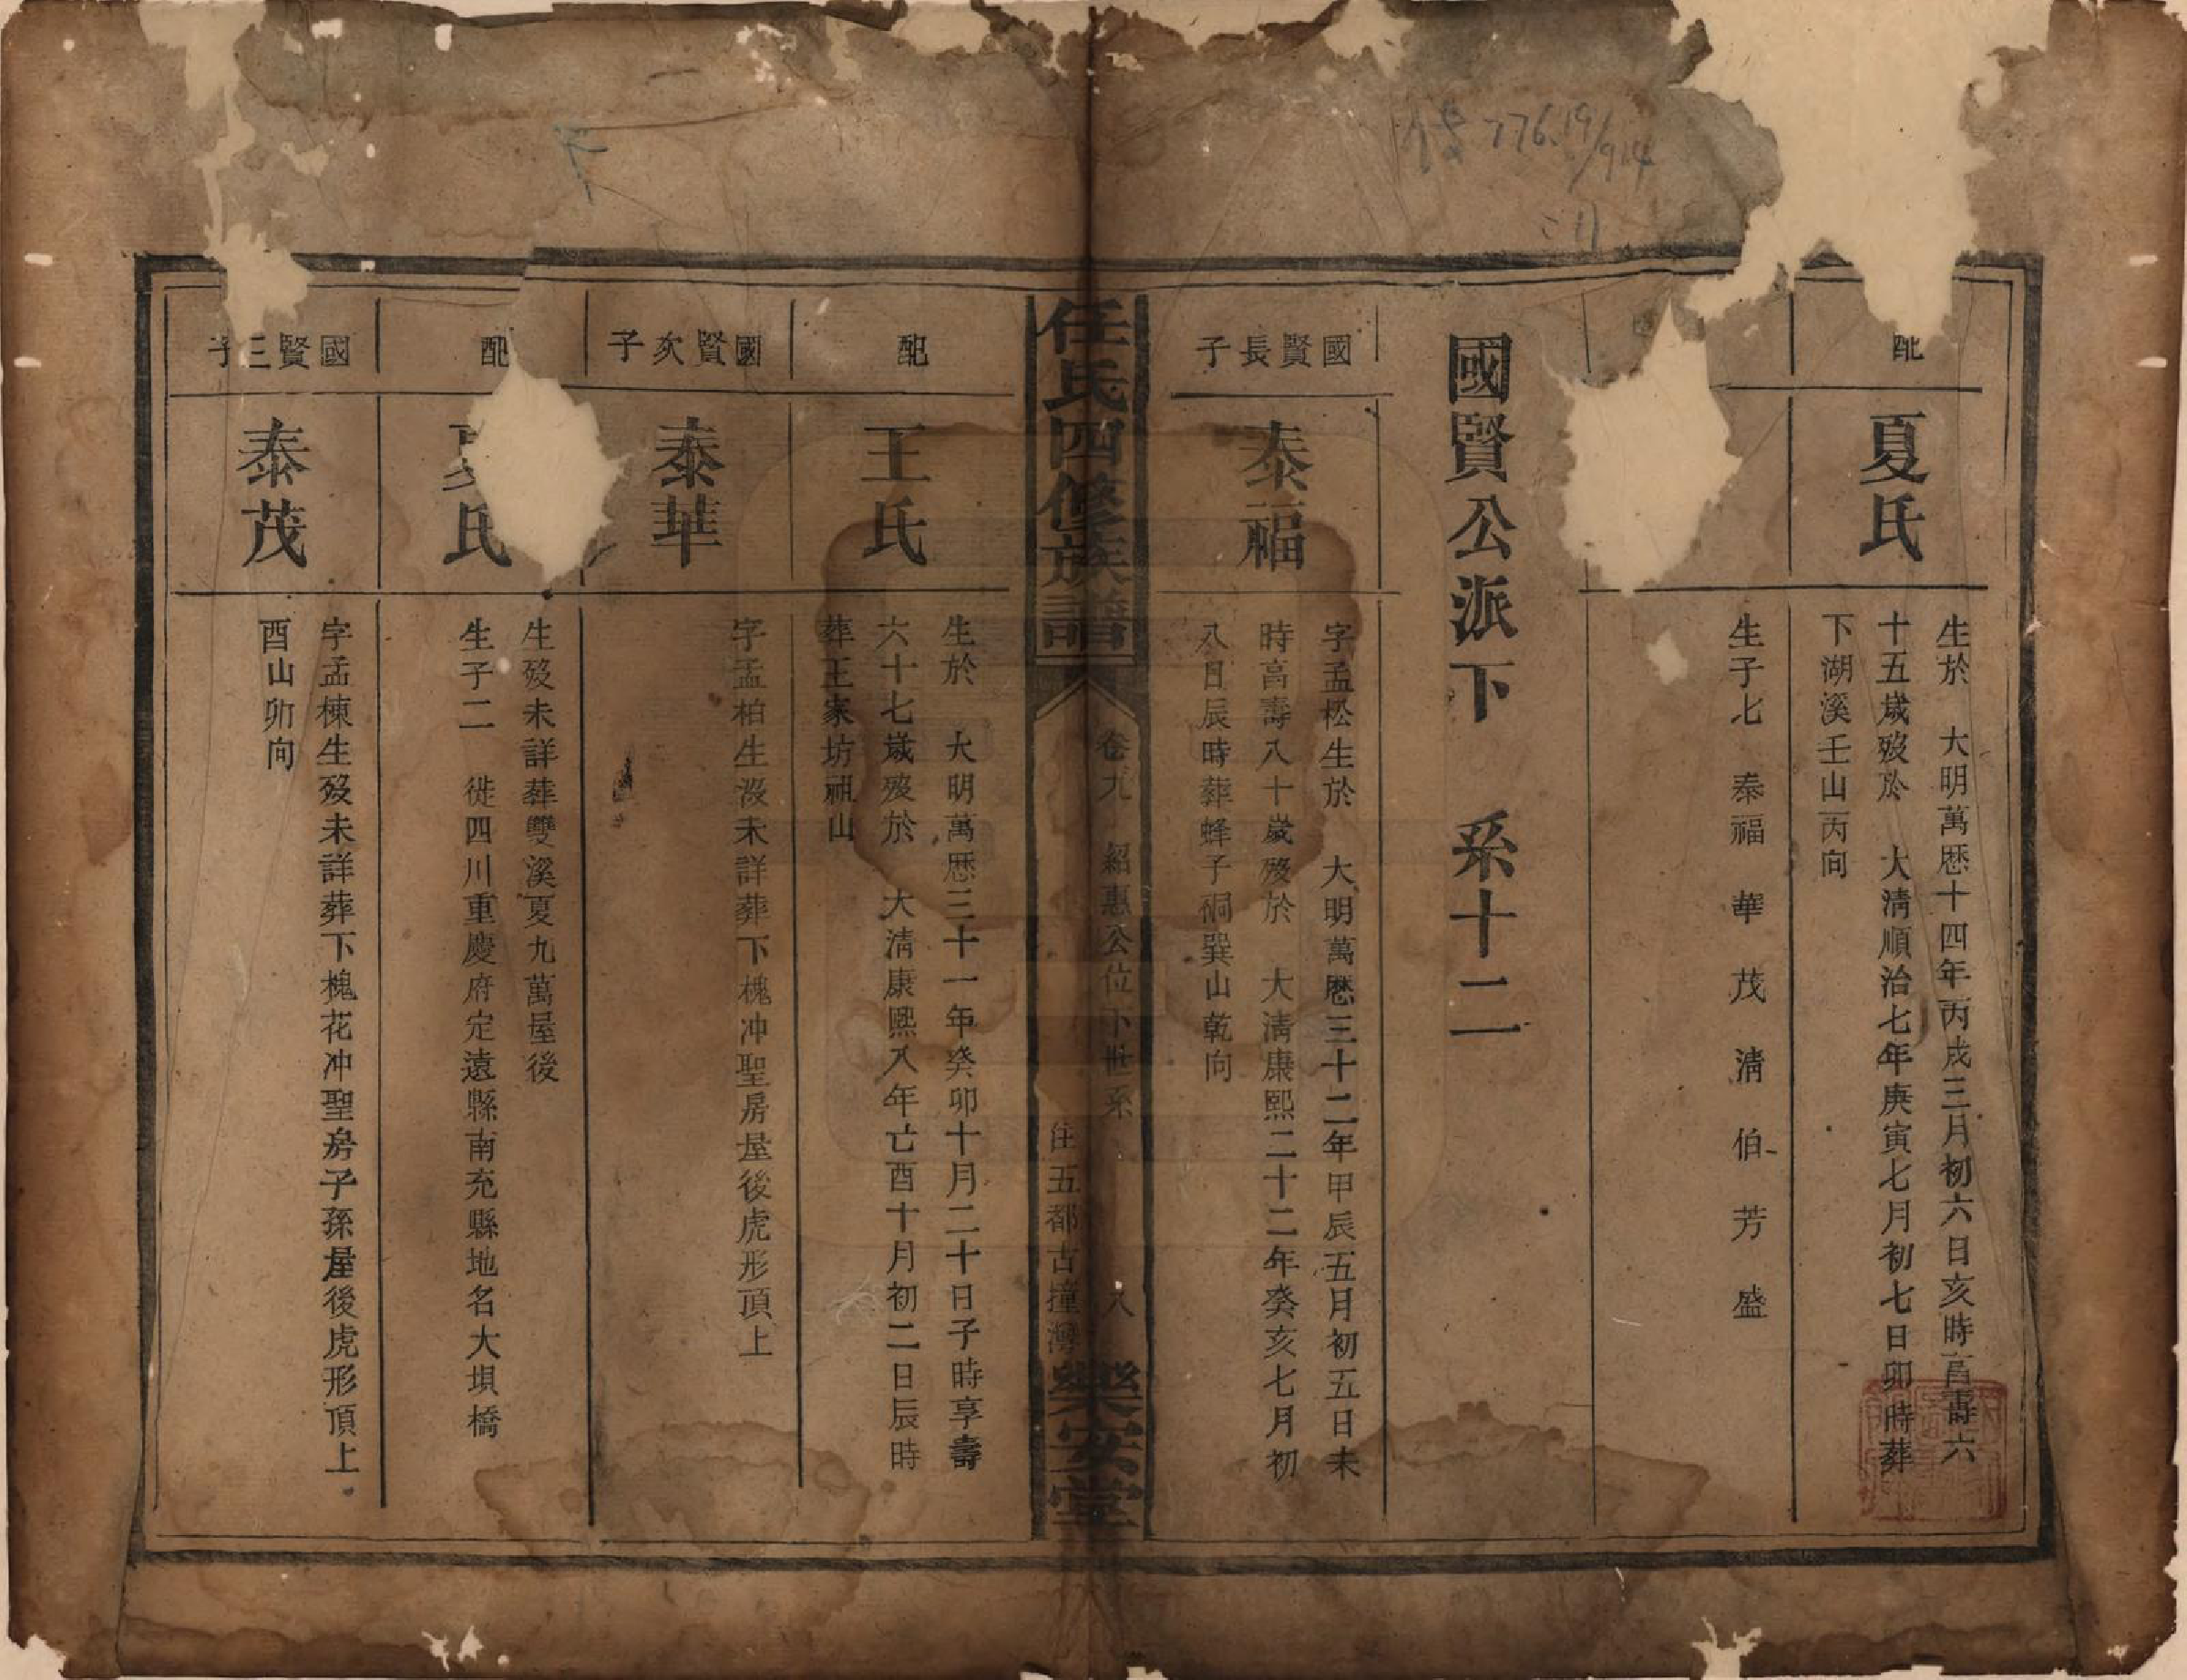 配
夏氏
生於　大明萬歷十四年丙戌三月初六日亥時享壽六
十五歲歿於　大清順治七年庚寅七月初七日卯時葬
下湖溪壬山丙向
生子七　泰福　華　茂　清　伯　芳　盛
國賢公派下　系十二
國賢長子
泰福
字孟松生於　大明萬歷三十二年甲辰五月初五日未
時享壽八十歲歿於　大清康熙二十二年癸亥七月初
八日辰時葬蜂子硐巽山乾向
任氏四修族譜
卷九　紹惠公位下世系
八
住五都古撞灣
樂安堂
配
王氏
生於　大明萬歷三十一年癸卯十月二十日子時享壽
六十七歲歿於　大清康熙八年亡酉十月初二日辰時
葬王家坊祖山
國賢次子
泰華
字孟柏生歿未詳葬下槐冲聖房屋後虎形頂上
配
夏氏
生歿未詳葬雙溪夏九萬屋後
生子二　徙四川重慶府定遠縣南充縣地名大垻橋
國賢三子
泰茂
字孟棟生歿未詳葬下槐花冲聖房子孫屋後虎形頂上
酉山卯向
776.19/914